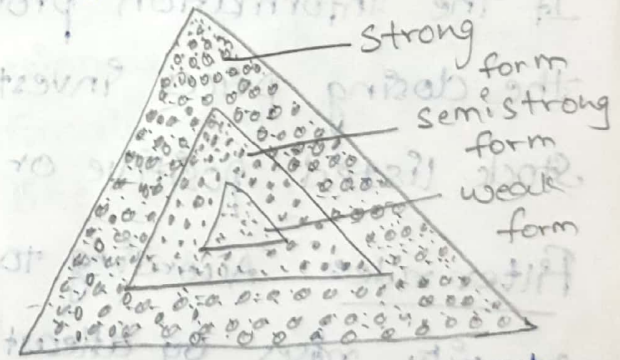 strong
form
semistrong
form
weak
form